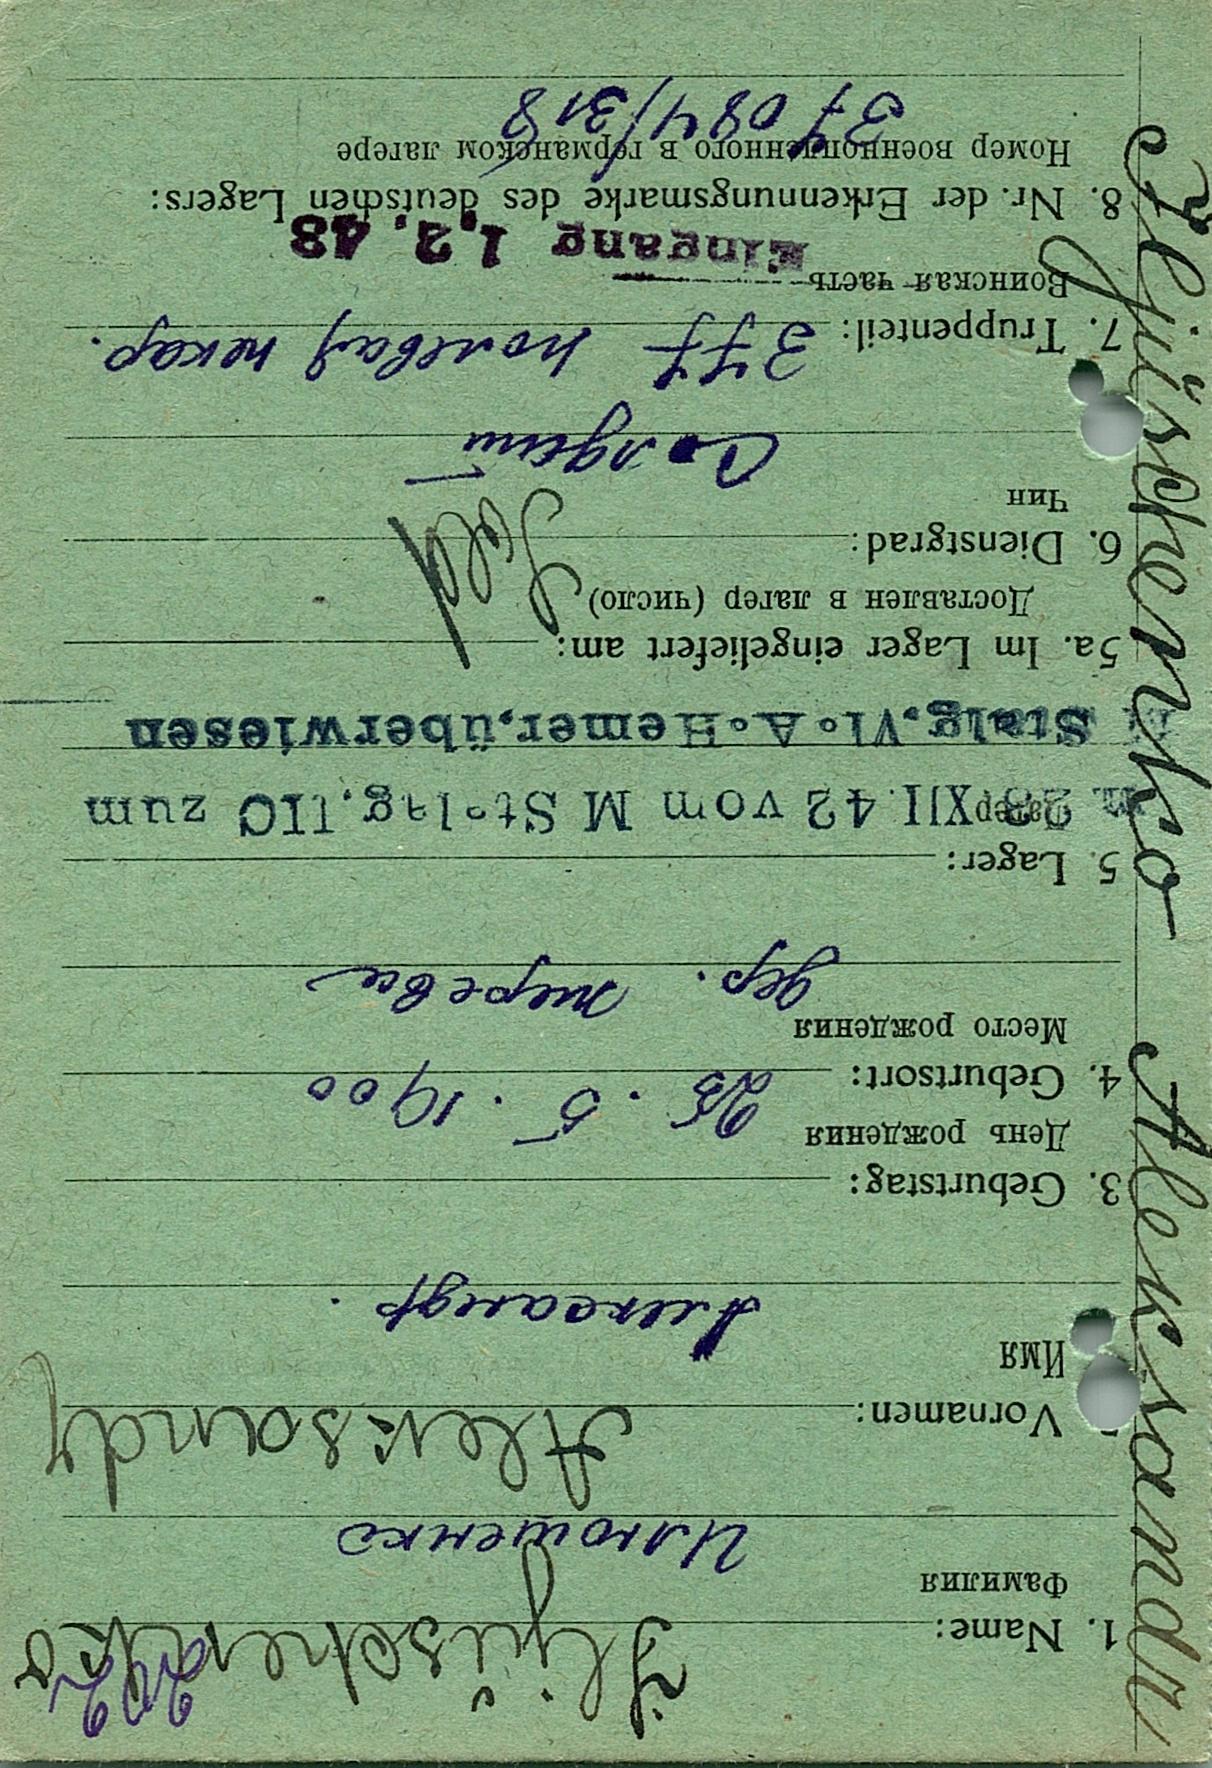 202
1. Name: Iljüschenko
Фамилия
Илюшенко
Vornamen: Aleksandr
Имя
Александр.
3. Geburtstag:
День рождения
25. 5. 1900
4. Geburtsort:
Место рождения
дер.
5. Lager:
Лагерь
23. XII. 42 vom M Stalag. IIC zum
Stalg. VI. A. Hemer. überwiesen
5a. Im Lager eingeliefert am:
Доставлен в лагерь (число)
6. Dienstgrad: Sold
Чин
Солдат
7. Truppenteil: 377 полевая пекар.
Воинская часть
Eingang 1.2.43
8. Nr. der Erkennungsmarke des deutschen Lagers:
Номер военнопленного в германском лагере
37084/318
Iljüschenko Aleksandr